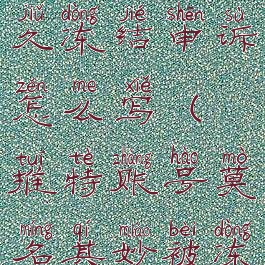 jiǔ dòng jié shēn sù
久冻结申诉
zěn me xiě
怎么写(
tuī tè zhàng hào mò
推特账号莫
míng qí miào bèi dòng
名其妙被冻